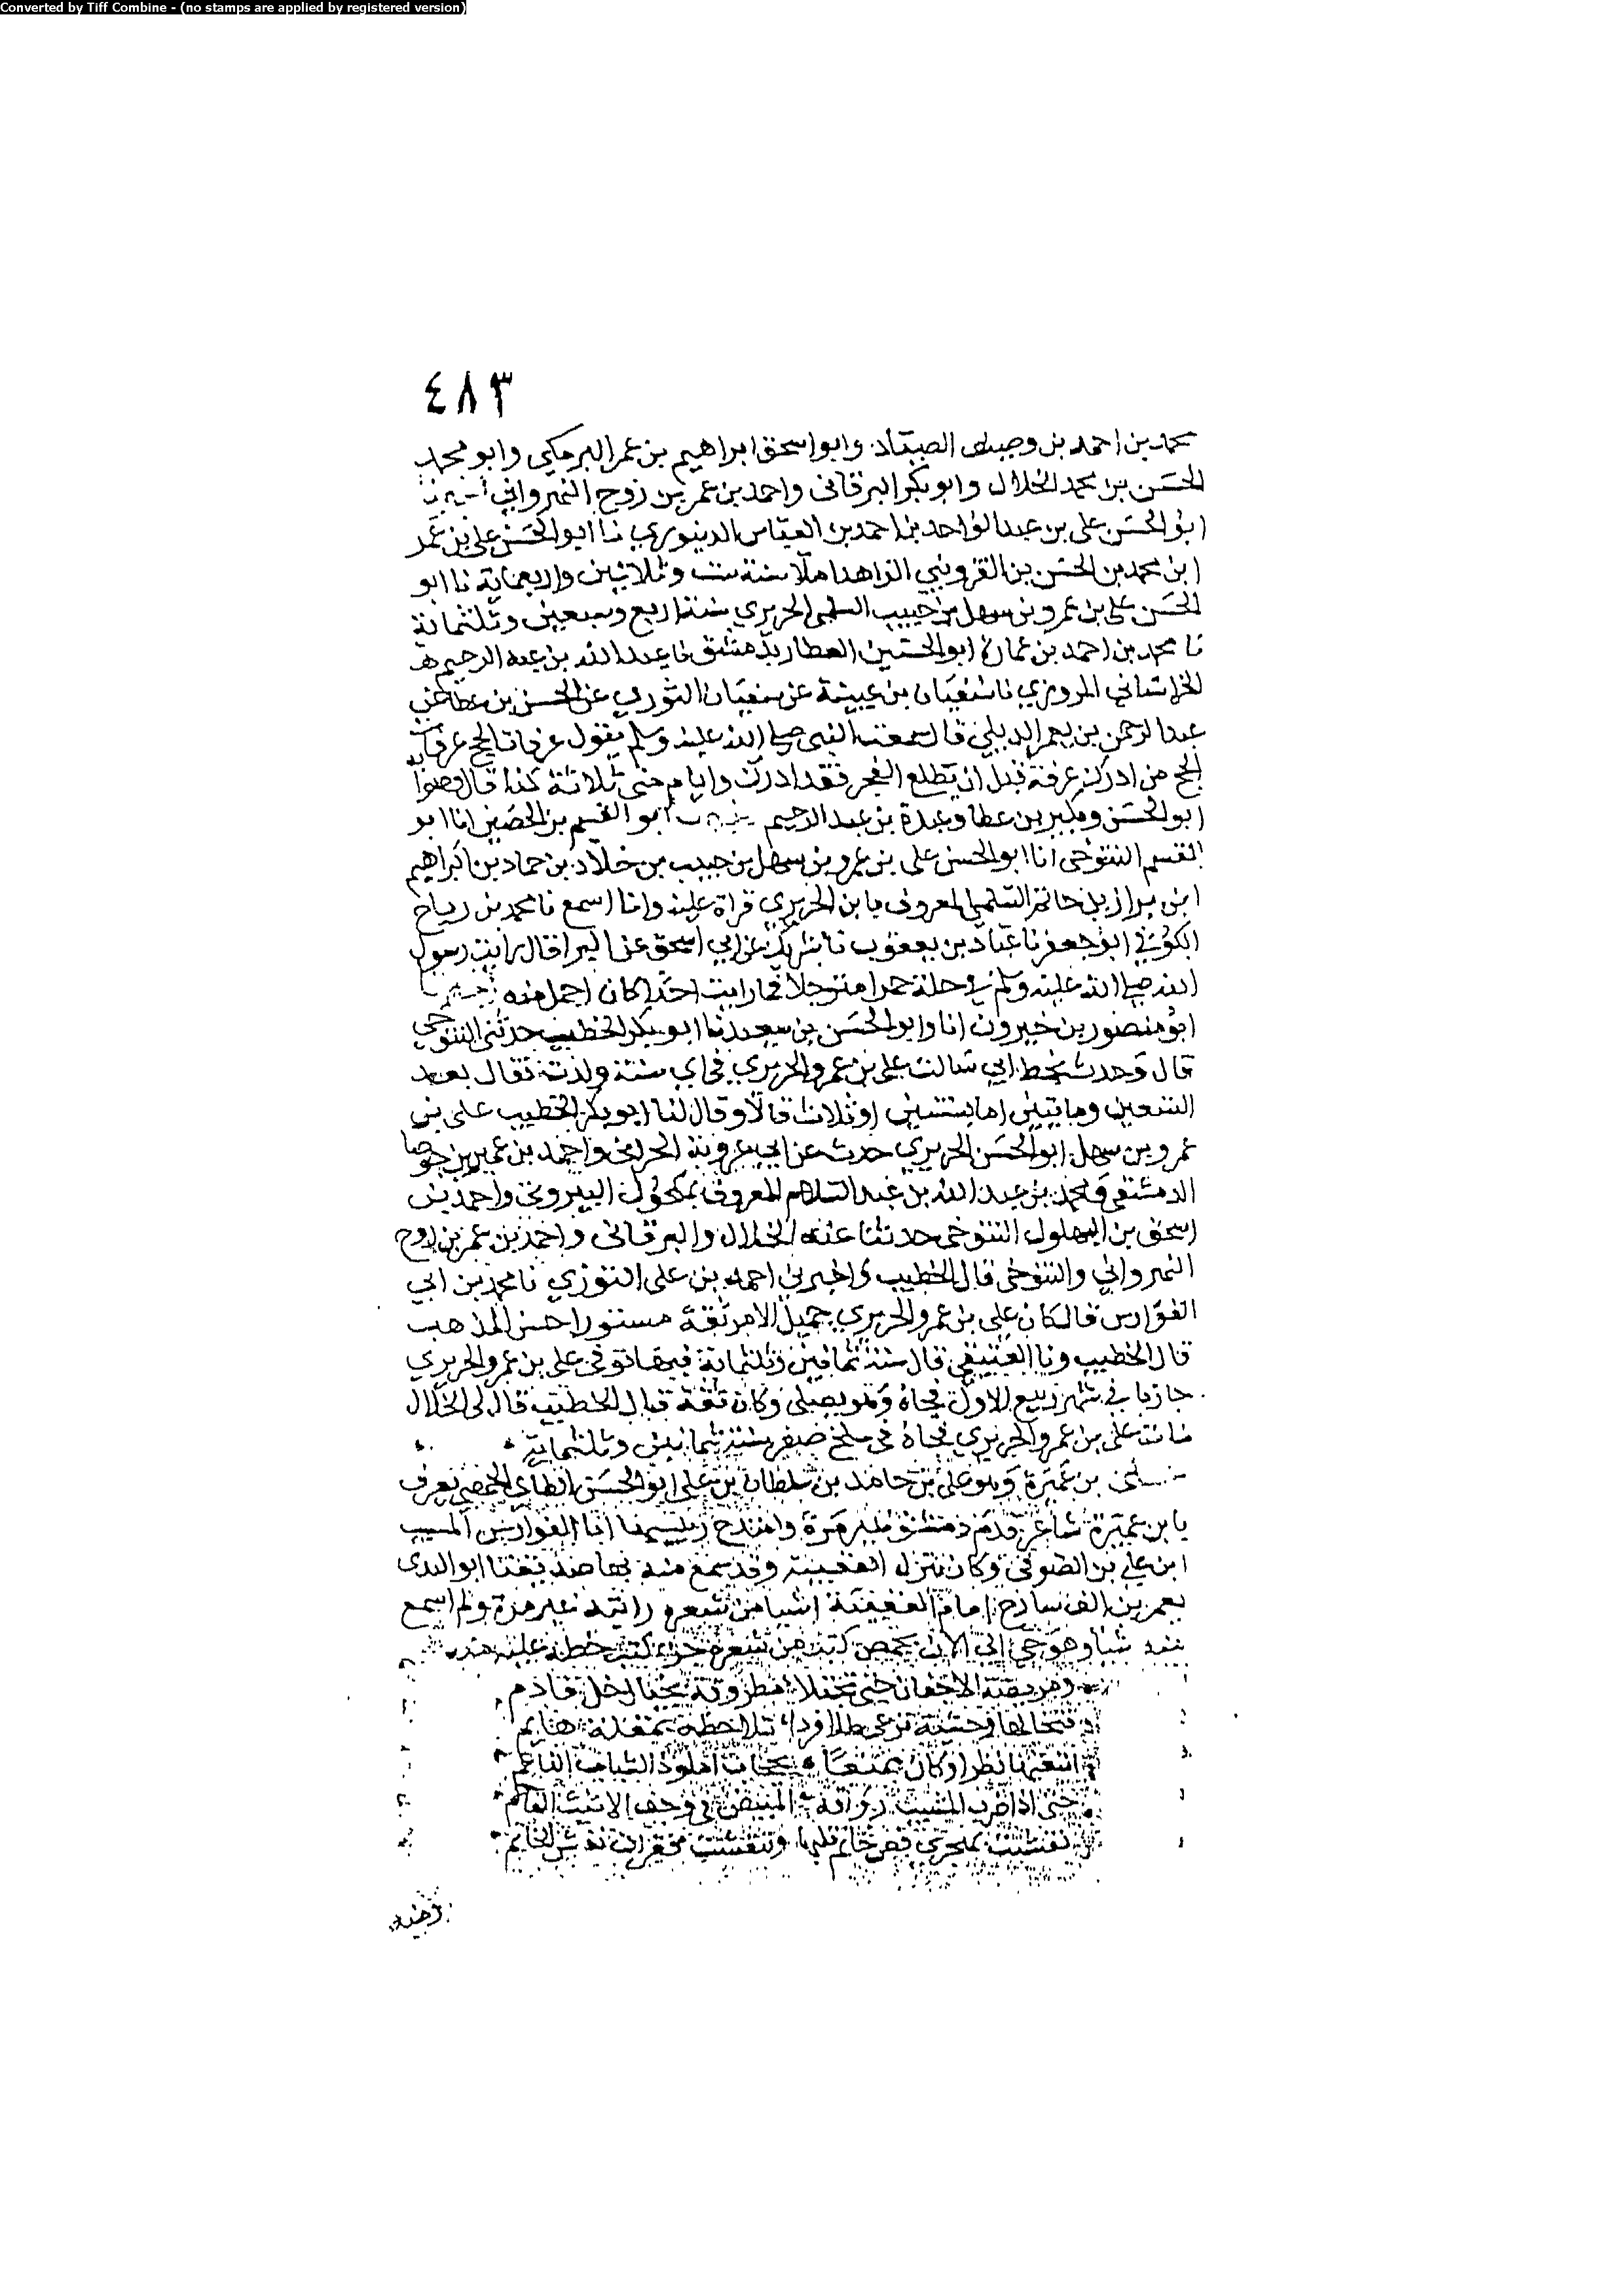 Converted by Tiff Combine - (no stamps are applied by registered version)
٤٨٣
محمد بن احمد بن وصيف الصياد وابو اسحق ابراهيم بن عمر البرمكي وابو محمد
الحسن بن محمد الخلال وابو بكر البرقانى واحمد بن عمر بن روح النهرواني
ابو الحسن على بن عبد الواحد بن احمد بن العباس الدينوري نا ابو الحسن على بن عمر
ابن محمد بن الحسن بن القزويني الزاهد املا سنة ست وثلاثين واربعماية نا ابو
الحسن على بن عمرو بن سهل بن حبيب السلمى الحريري سنة اربع وسبعين وثلثماية
نا محمد بن احمد بن عمارة ابو الحسين العطار بدمشق نا عبد الله بن عبد الرحيم
الخراساني المروزي نا سفيان بن عيينة عن سفيان الثوري عن الحسن بن عطا عن
عبد الرحمن بن يعمر الديلي قال سمعت النبى صلى الله عليه وسلم يقول عرفات الحج عرفات
الحج من ادرك عرفة قبل ان يطلع الفجر فقد ادرك وايام منى ثلاثة كذا قال وصوا
ابو الحسن وبكير بن عطا وعبدة بن عبد الرحيم ابو القسم بن الحصين انا ابو
القسم التنوخى انا ابو الحسن على بن عمرو بن سهل بن حبيب بن خلاد بن حماد بن ابراهيم
ابن حاتم السلمي المعروف بابن الحريري قراة عليه وانا اسمع نا محمد بن رياح
الكوفي ابو جعفر نا عباد بن يعقوب نا شريك عن ابي اسحق عن البرا قال رايت رسول
الله صلى الله عليه وسلم في حلة حمرا مترجلا فما رايت احدا كان اجمل منه
ابو منصور بن خيرون انا وابو الحسن بن سعيد نا ابو بكر الخطيب حدثني التنوخي
قال وجدت بخط ابي سالت على بن عمرو الحريري في اي سنة ولدت فقال بعد
التسعين وماتين اما بسنتين او ثلاث قالا وقال لنا ابو بكر الخطيب على بن
عمرو بن سهل ابو الحسن الحريري حدث عن ابي عروبة الحرانى واحمد بن عمير بن جوصا
الدمشقى ومحمد بن عبد الله بن عبد السلام المعروف بمكحول البيروتي واحمد بن
اسحق بن البهلول التنوخى حدثنا عنه الخلال والبرقانى واحمد بن عمر بن روح
النهرواني والتنوخى قال الخطيب واخبرني احمد بن على التوزي نا محمد بن ابي
الفوارس قال كان على بن عمرو الحريري جميل الامر ثقة مستورا حسن المذهب
قال الخطيب ونا العتيقي قال سنة ثمانين وثلثماية فيها توفى على بن عمرو الحريري
في شهر ربيع الاول فجاة وهو يصلى وكان ثقة قال الخطيب قال لى الخلال
مات على بن عمرو الحريري فجاة فى سلخ صفر سنة ثمانين وثلثماية
على بن عميرة وهو على بن حامد بن سلطان بن على ابو الحسن الطاي الحمصي يعرف
بابن عميرة شاعر قدم دمشق غير مرة وامتدح رئيسها ابا الفوارس المسيب
ابن علي بن الصوفى وكان ينزل العقيبة وقد سمع منه بها صديقنا ابو الندى
يعمر بن الف سارح امام العقيبة اشيا من شعره رايته غير مرة ولم اسمع
منه شيا وهو حي الى الان بحمص كتبت من شعره جزء كتب خطه عليه منه
ومريضة الاجفان حتى تخفلا مطروقة بخيال خل قادم
وتخالها وحشية ترعى طلا فردا تلاحظه بمقلة هايم
تمنعا الشباب الناعم
حتى اذا ضرب المشيب رواقه المبيض في وحف الاثيث الفاحم